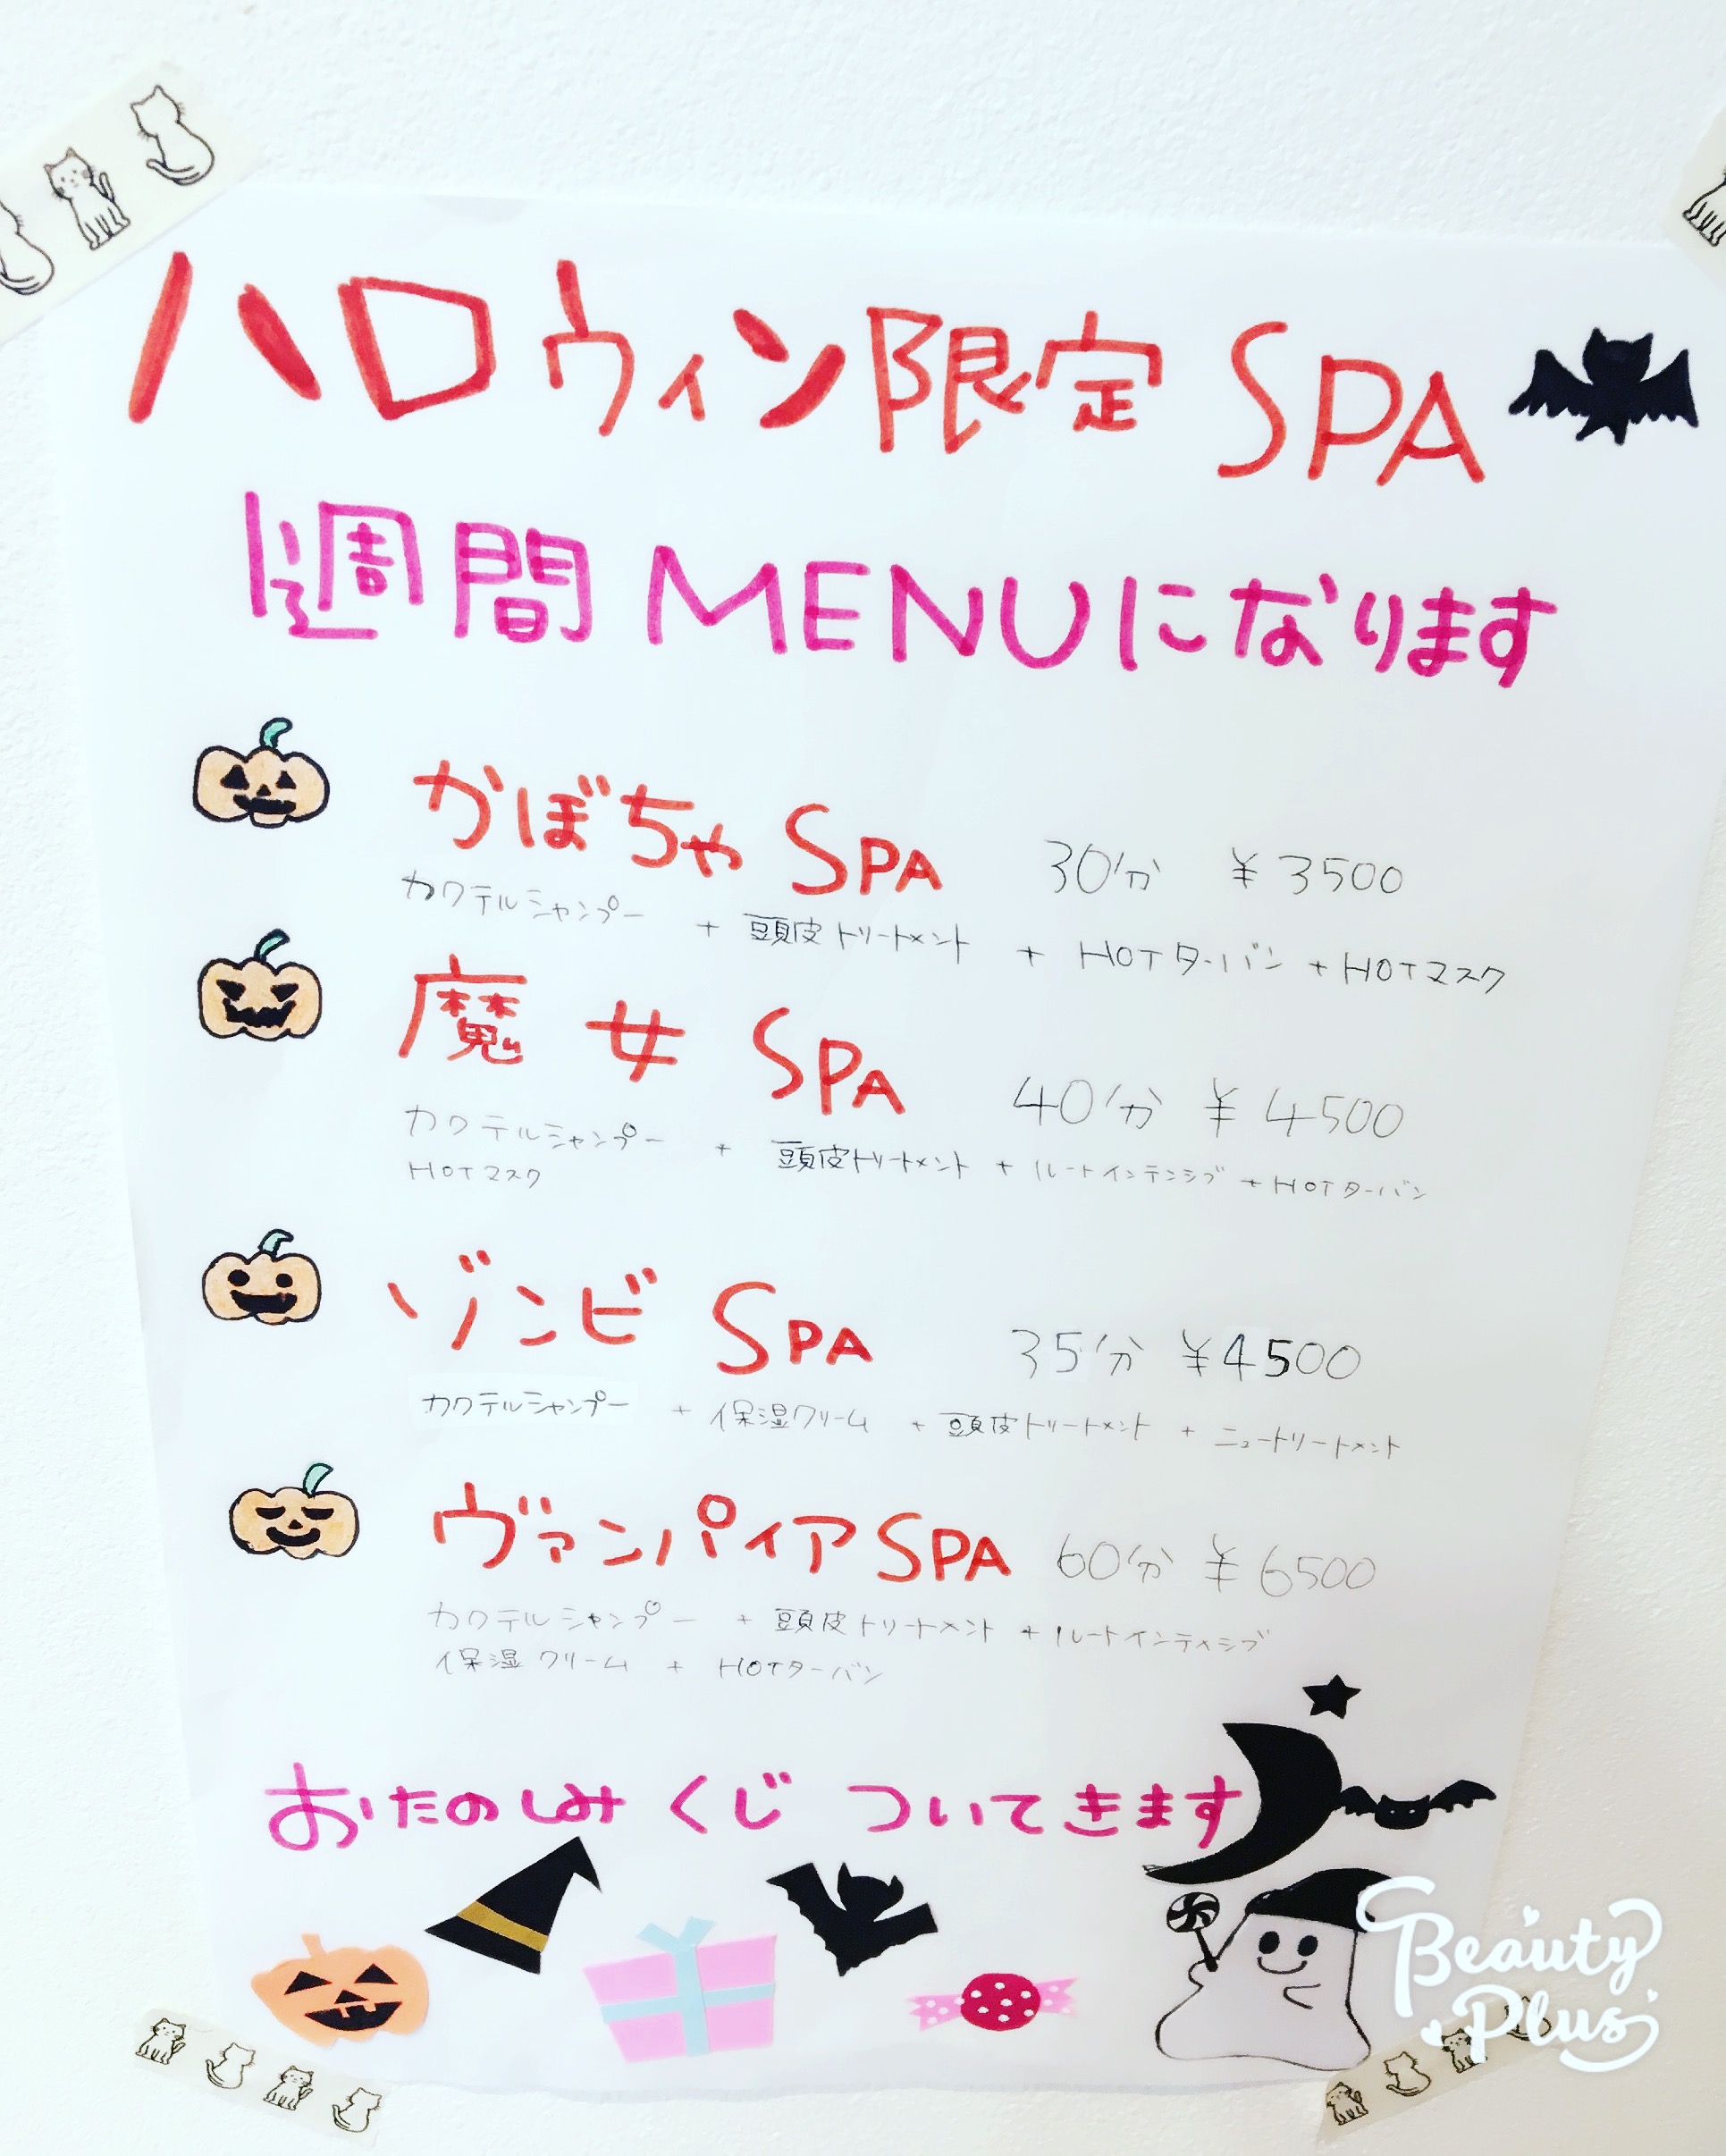 ハロウィン限定 SPA
1週間 MENUになります
かぼちゃ SPA 30分 ¥3500
カクテルシャンプー + 頭皮トリートメント + HOTターバン + HOTマスク
魔女 SPA 40分 ¥4500
カクテルシャンプー + 頭皮トリートメント + ルートインテンシブ + HOTターバン
HOTマスク
ゾンビ SPA 35分 ¥4500
カクテルシャンプー + 保湿クリーム + 頭皮トリートメント + ニュートリートメント
ヴァンパイア SPA 60分 ¥6500
カクテルシャンプー + 頭皮トリートメント + ルートインテンシブ
保湿クリーム + HOTターバン
おたのしみくじ ついてきます
Beauty
Plus